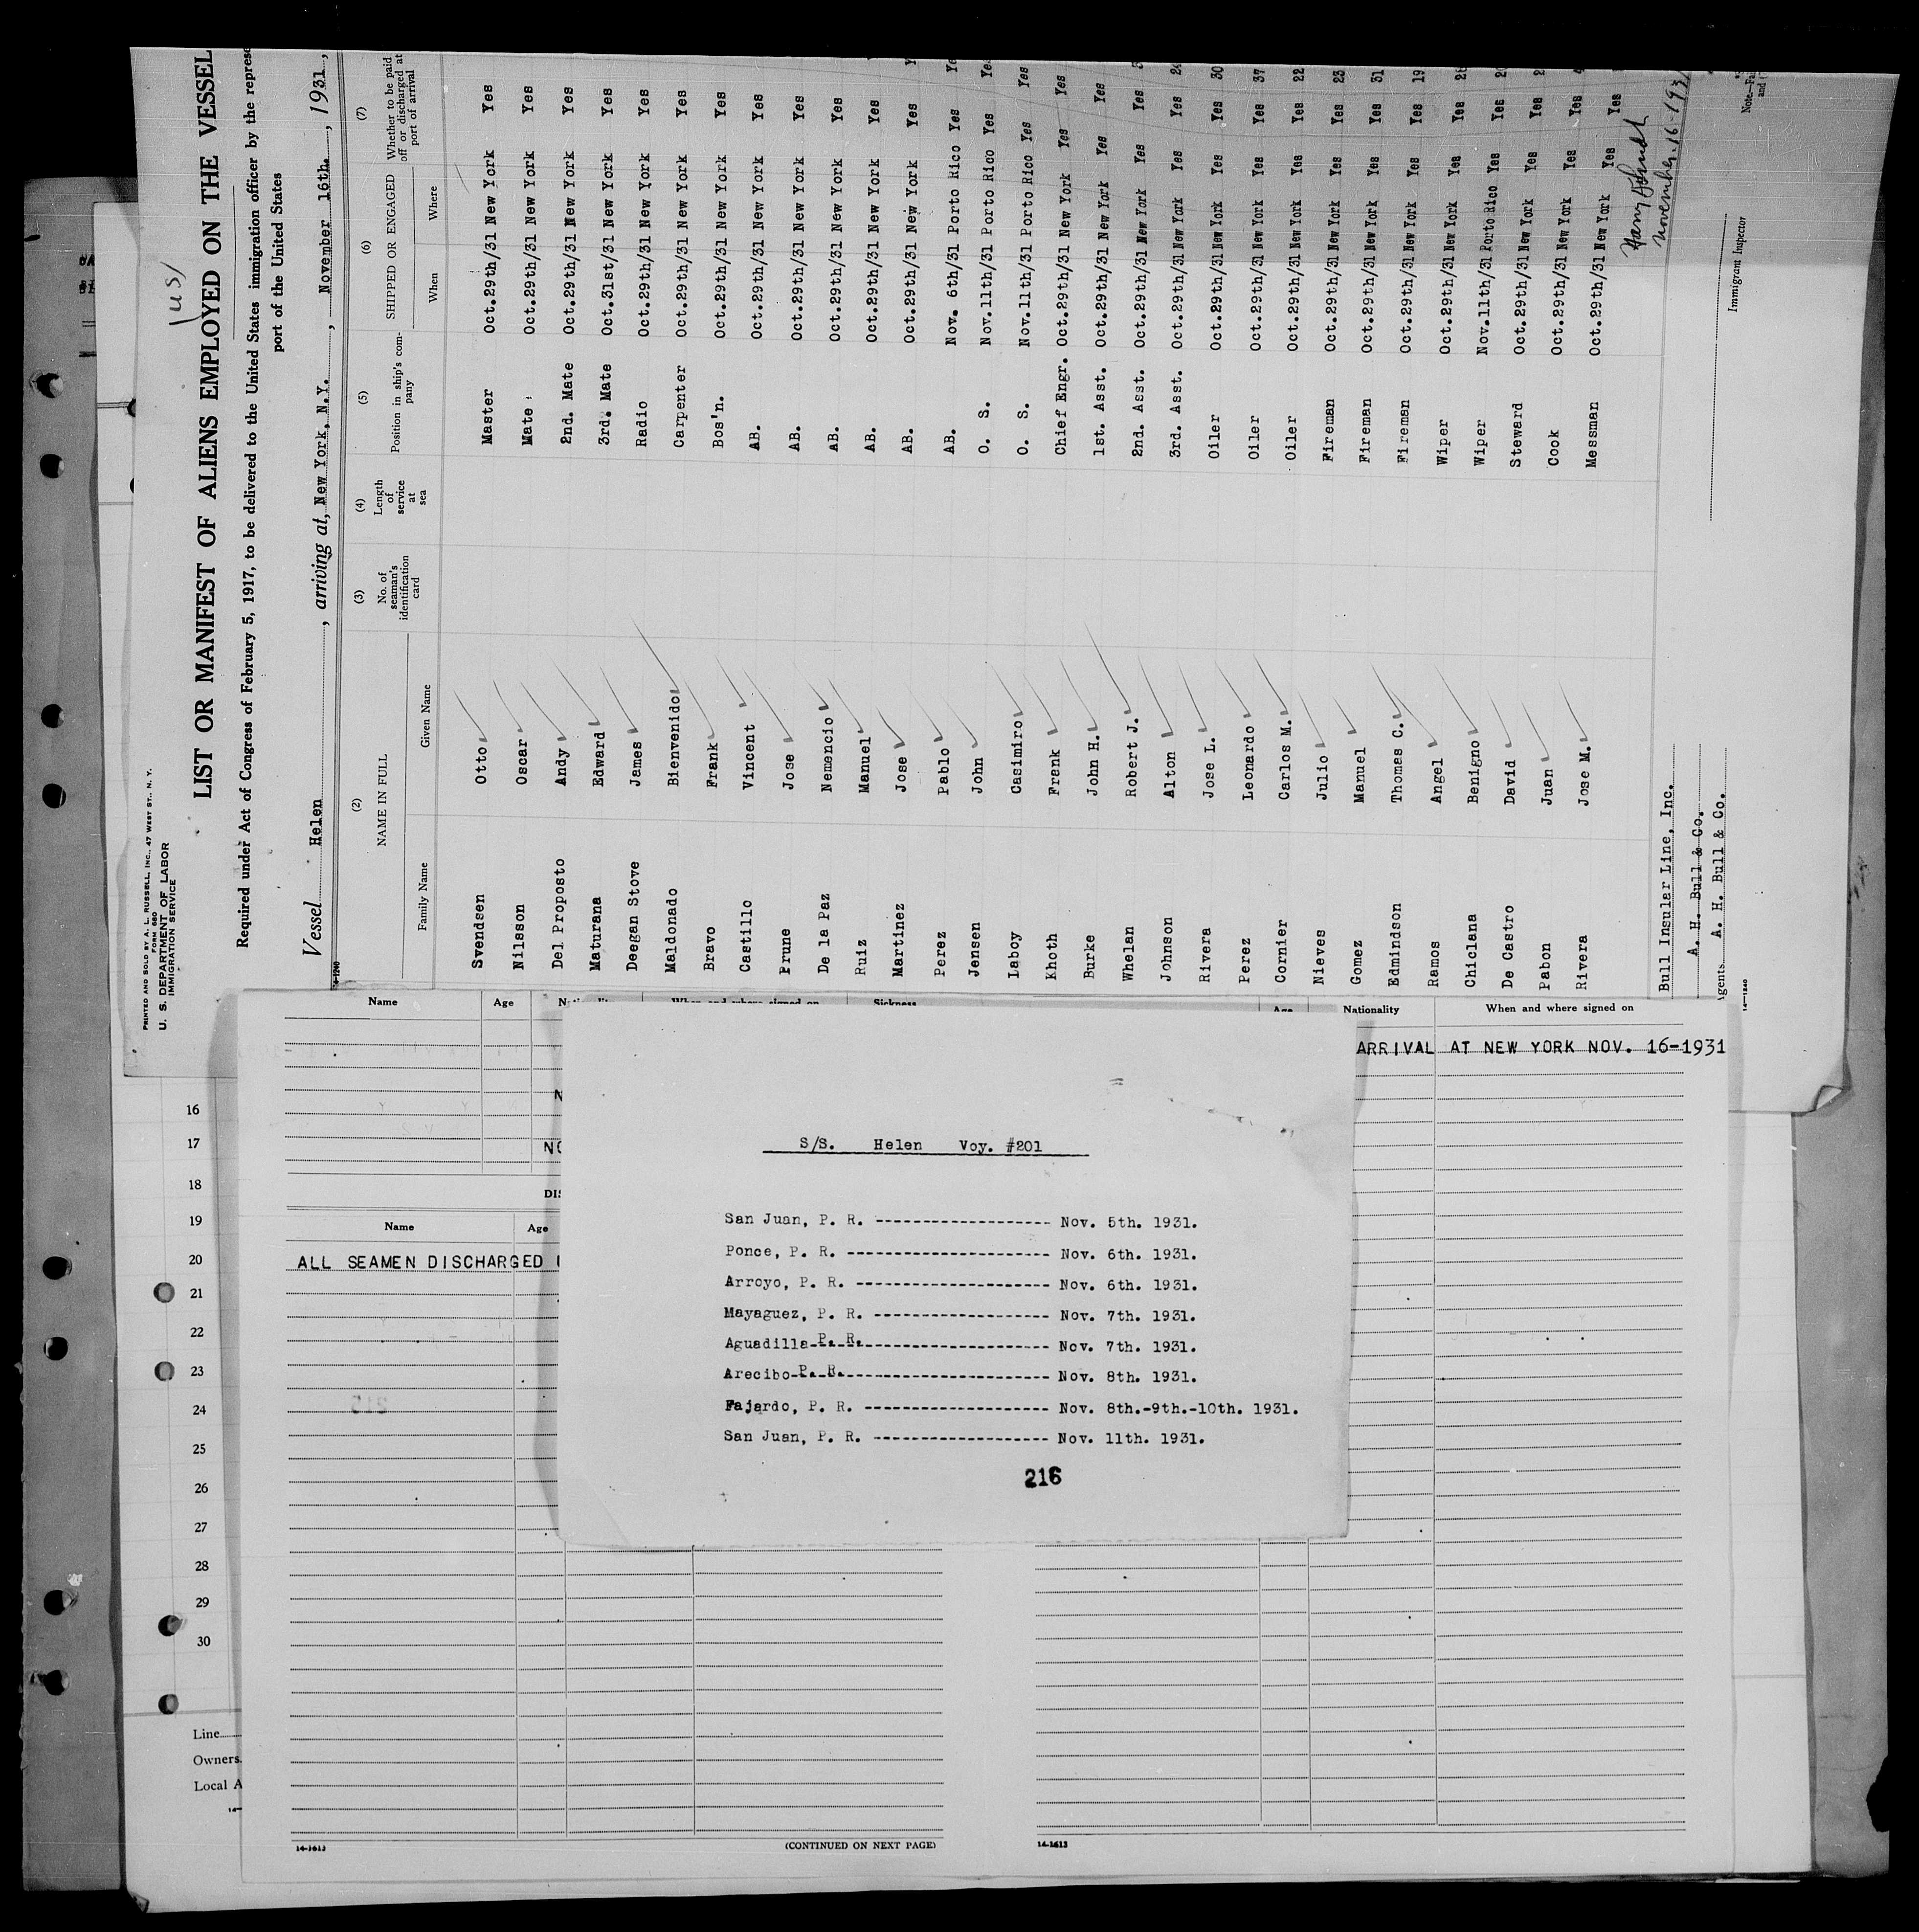 PRINTED AND SOLD BY A. L. RUSSELL, INC., 47 WEST ST., N. Y.
FORM 680
U. S. DEPARTMENT OF LABOR
IMMIGRATION SERVICE
(US)
LIST OR MANIFEST OF ALIENS EMPLOYED ON THE VESSEL
Required under Act of Congress of February 5, 1917, to be delivered to the United States immigration officer by the
port of the United States
Vessel Helen, arriving at, New York, N.Y., November 16th., 1931,
(2) (3) (4) (5) (6) (7)
NAME IN FULL No. of seaman's identification card Length of service at sea Position in ship's company SHIPPED OR ENGAGED Whether to be paid off or discharged at port of arrival
Family Name Given Name When Where
Svendsen Otto Master Oct.29th/31 New York Yes
Nilsson Oscar Mate Oct.29th/31 New York Yes
Del Proposto Andy 2nd. Mate Oct.29th/31 New York Yes
Maturana Edward 3rd. Mate Oct.31st/31 New York Yes
Deegan Stove James Radio Oct.29th/31 New York Yes
Maldonado Bienvenido Carpenter Oct.29th/31 New York Yes
Bravo Frank Bos'n. Oct.29th/31 New York Yes
Castillo Vincent AB. Oct.29th/31 New York Yes
Prune Jose AB. Oct.29th/31 New York Yes
De la Paz Nemencio AB. Oct.29th/31 New York Yes
Ruiz Manuel AB. Oct.29th/31 New York Yes
Martinez Jose AB. Oct.29th/31 New York Yes
Perez Pablo AB. Nov. 6th/31 Porto Rico Yes
Jensen John O. S. Nov.11th/31 Porto Rico Yes
Laboy Casimiro O. S. Nov.11th/31 Porto Rico Yes Yes
Khoth Frenk Chief Engr. Oct.29th/31 New York Yes Yes
Burke John H. 1st. Asst. Oct.29th/31 New York Yes Yes
Whelan Robert J. 2nd. Asst. Oct.29th/31 New York Yes Yes
Johnson Alton 3rd. Asst. Oct.29th/31 New York Yes Yes
Rivera Jose L. Oiler Oct.29th/31 New York Yes Yes 30
Perez Leonardo Oiler Oct.29th/31 New York Yes Yes 37
Cornier Carlos M. Oiler Oct.29th/31 New York Yes Yes 22
Nieves Julio Fireman Oct.29th/31 New York Yes Yes 23
Gomez Manuel Fireman Oct.29th/31 New York Yes Yes 31
Edmindson Thomas C. Fireman Oct.29th/31 New York Yes Yes 19
Ramos Angel Wiper Oct.29th/31 New York Yes Yes
Chiclana Benigno Wiper Nov.11th/31 Porto Rico Yes Yes
De Castro David Steward Oct.29th/31 New York Yes Yes
Pabon Juan Cook Oct.29th/31 New York Yes Yes
Rivera Jose M. Messman Oct.29th/31 New York Yes Yes
November-16-1931
Bull Insular Line, Inc.
A. H. Bull & Co.
A. H. Bull & Co.
Immigrant Inspector
14-1240
Name Age
Nationality When and where signed on
ARRIVAL AT NEW YORK NOV. 16-1931
Name Age
ALL SEAMEN DISCHARGED
S/S. Helen Voy. #201
San Juan, P. R. ------------------- Nov. 5th. 1931.
Ponce, P. R. ---------------------- Nov. 6th. 1931.
Arroyo, P. R. --------------------- Nov. 6th. 1931.
Mayaguez, P. R. ------------------- Nov. 7th. 1931.
Aguadilla P. R. -------------------- Nov. 7th. 1931.
Arecibo P. R. ---------------------- Nov. 8th. 1931.
Fajardo, P. R. -------------------- Nov. 8th.-9th.-10th. 1931.
San Juan, P. R. ------------------- Nov. 11th. 1931.
216
16
17
18
19
20
21
22
23
24
25
26
27
28
29
30
Line
Owners
Local A
14-1613
(CONTINUED ON NEXT PAGE)
14-1613